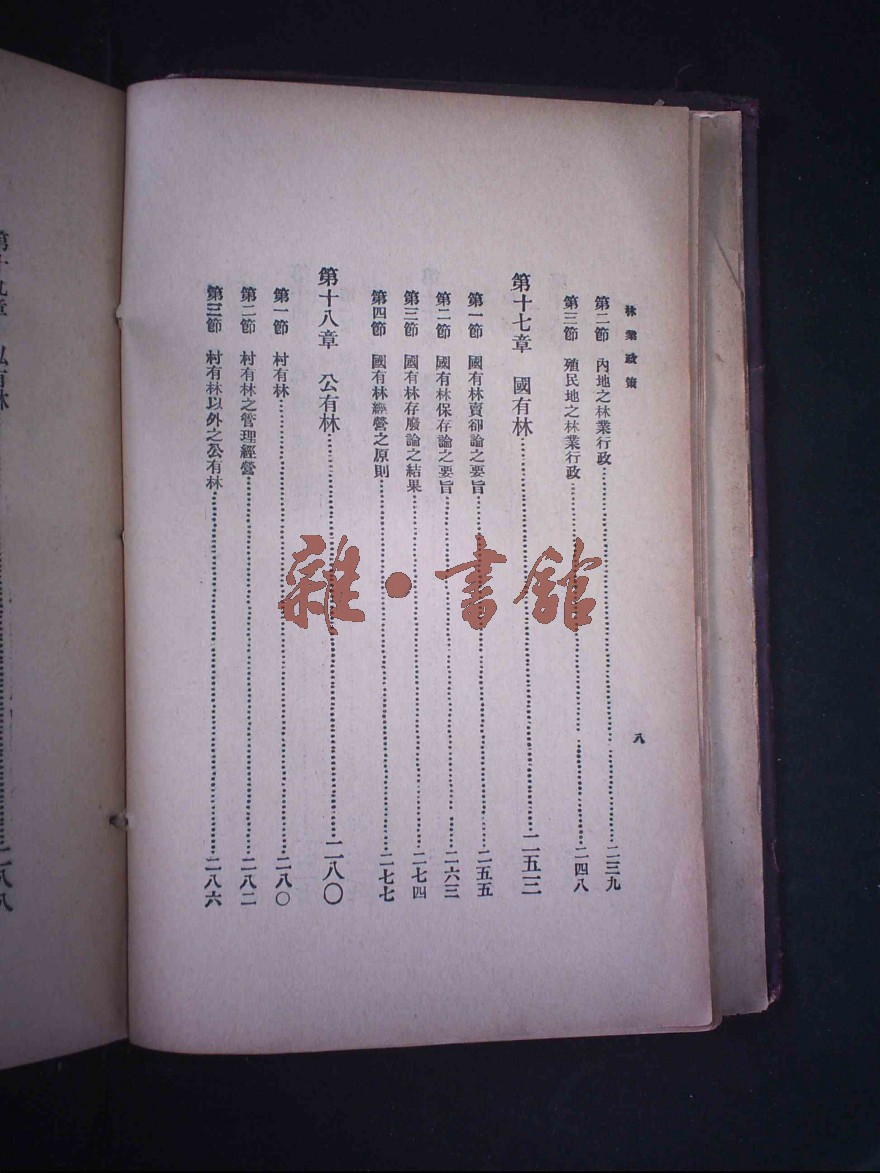 林業政策
八
第二節 內地之林業行政……二三九
第三節 殖民地之林業行政……二四八
第十七章 國有林……二五三
第一節 國有林賣卻論之要旨……二五五
第二節 國有林保存論之要旨……二六三
第三節 國有林存廢論之結果……二七四
第四節 國有林經營之原則……二七七
第十八章 公有林……二八〇
第一節 村有林……二八〇
第二節 村有林之管理經營……二八二
第三節 村有林以外之公有林……二八六
第十九章 私有林……二八八
雜·書館